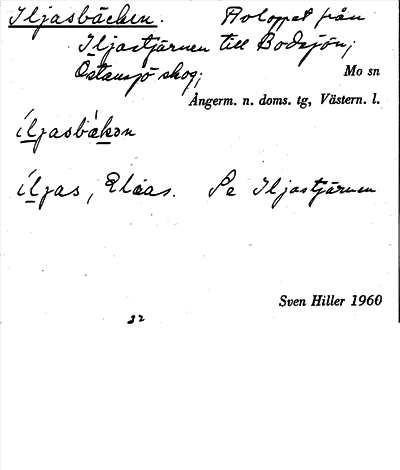 Iljasbäcken. Avloppet från
Iljastjärnen till Bodsjön;
Östansjö skog;
Mo sn
Ångerm. n. doms. tg, Västern. l.
íljasbä̀kən
íljas, Elias. Se Iljastjärnen
Sven Hiller 1960
32